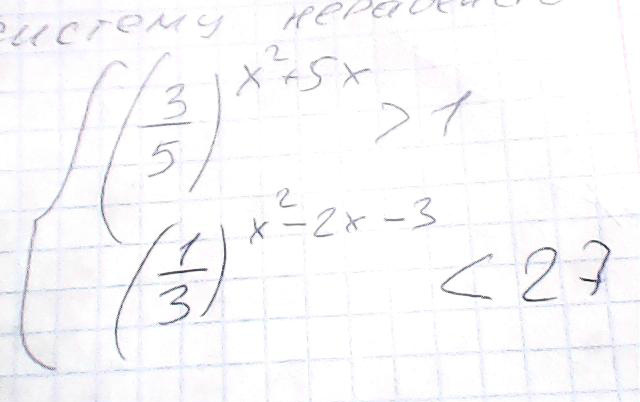 систему неравенств
{ (3/5)^(x²+5x) > 1
(1/3)^(x²-2x-3) < 27